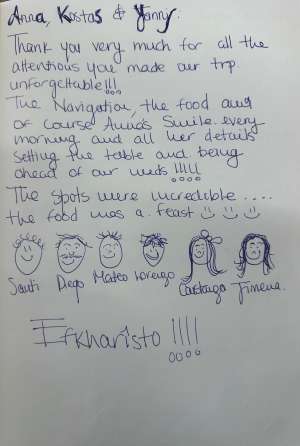 Anna, Kostas & Yanny.
Thank you very much for all the
attentions you made our trip
unforgettable!!!
The Navigation, the food and
of course Anna's Smile every
morning and all her details
setting the table and being
ahead of our needs !!!!!
The spots were incredible ....
the food was a feast
Santi Diego Mateo Lorenzo Jimena.
Efkharisto !!!!